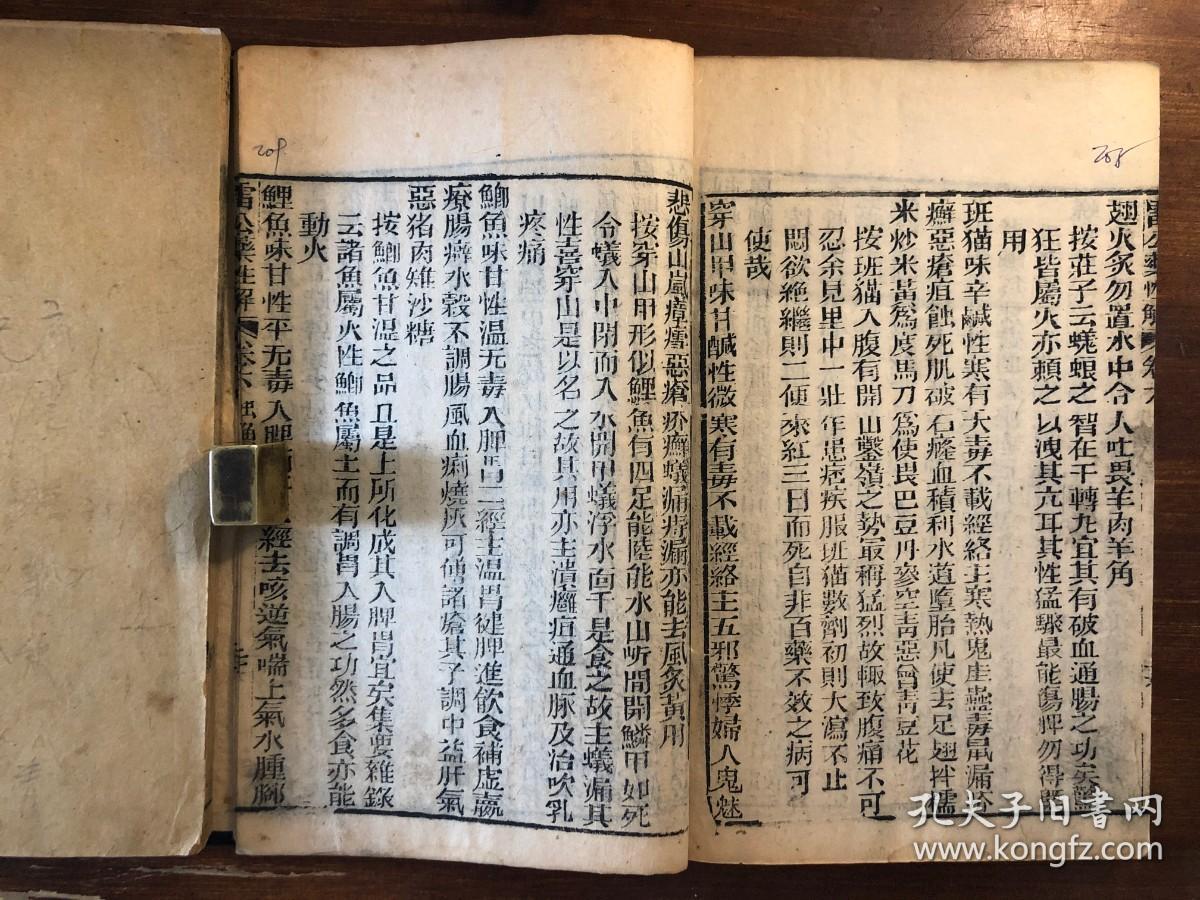 208
雷公藥性解 卷六
翅火炙勿置水中令人吐畏羊肉羊角
按莊子云蜣蜋之智在于轉丸宜其有破血通腸之功矣驚
狂皆屬火亦頼之以洩其亢耳其性猛驟最能傷脾勿得
用
班猫味辛鹹性寒有大毒不載經絡主寒熱鬼疰蠱毒鼠漏疥
癬惡瘡疽蝕死肌破石癃血積利水道墮胎凡使去足翅拌糯
米炒米黃爲度馬刀爲使畏巴豆丹參空靑惡曾靑豆花
按班猫入腹有開山鑿嶺之势最稱猛烈故輙致腹痛不可
忍余見里中一壯年患疮疾服班猫數劑初則大瀉不止
悶欲绝繼則二便來紅三日而死自非百藥不效之病可
使哉
穿山甲味甘鹹性微寒有毒不載經絡主五邪驚悸婦人鬼魅
209
悲傷山嵐瘴瘧惡瘡疥癬蟻瘺痔漏亦能去風炙黃用
按穿山甲形似鯉魚有四足能陸能水山岍間開鱗甲如死
令蟻入中閉而入水開甲蟻浮水面于是食之故主蟻瘺其
性喜穿山是以名之故其用亦主潰癰疽通血脉及治吹乳
疼痛
鯽魚味甘性温无毒入脾胃二經主温胃健脾進飲食補虚羸
療腸癖水穀不調腸風血痢燒灰可傅諸瘡其子調中益肝氣
惡猪肉雉沙糖
按鯽魚甘温之品且是土所化成其入脾胃宜矣集要雜錄
云諸魚屬火性鯽魚屬土而有調胃入腸之功然多食亦能
動火
鯉魚味甘性平无毒入脾經去咳逆氣喘上氣水腫脚
雷公藥性解 卷六
孔夫子旧书网
www.kongfz.com